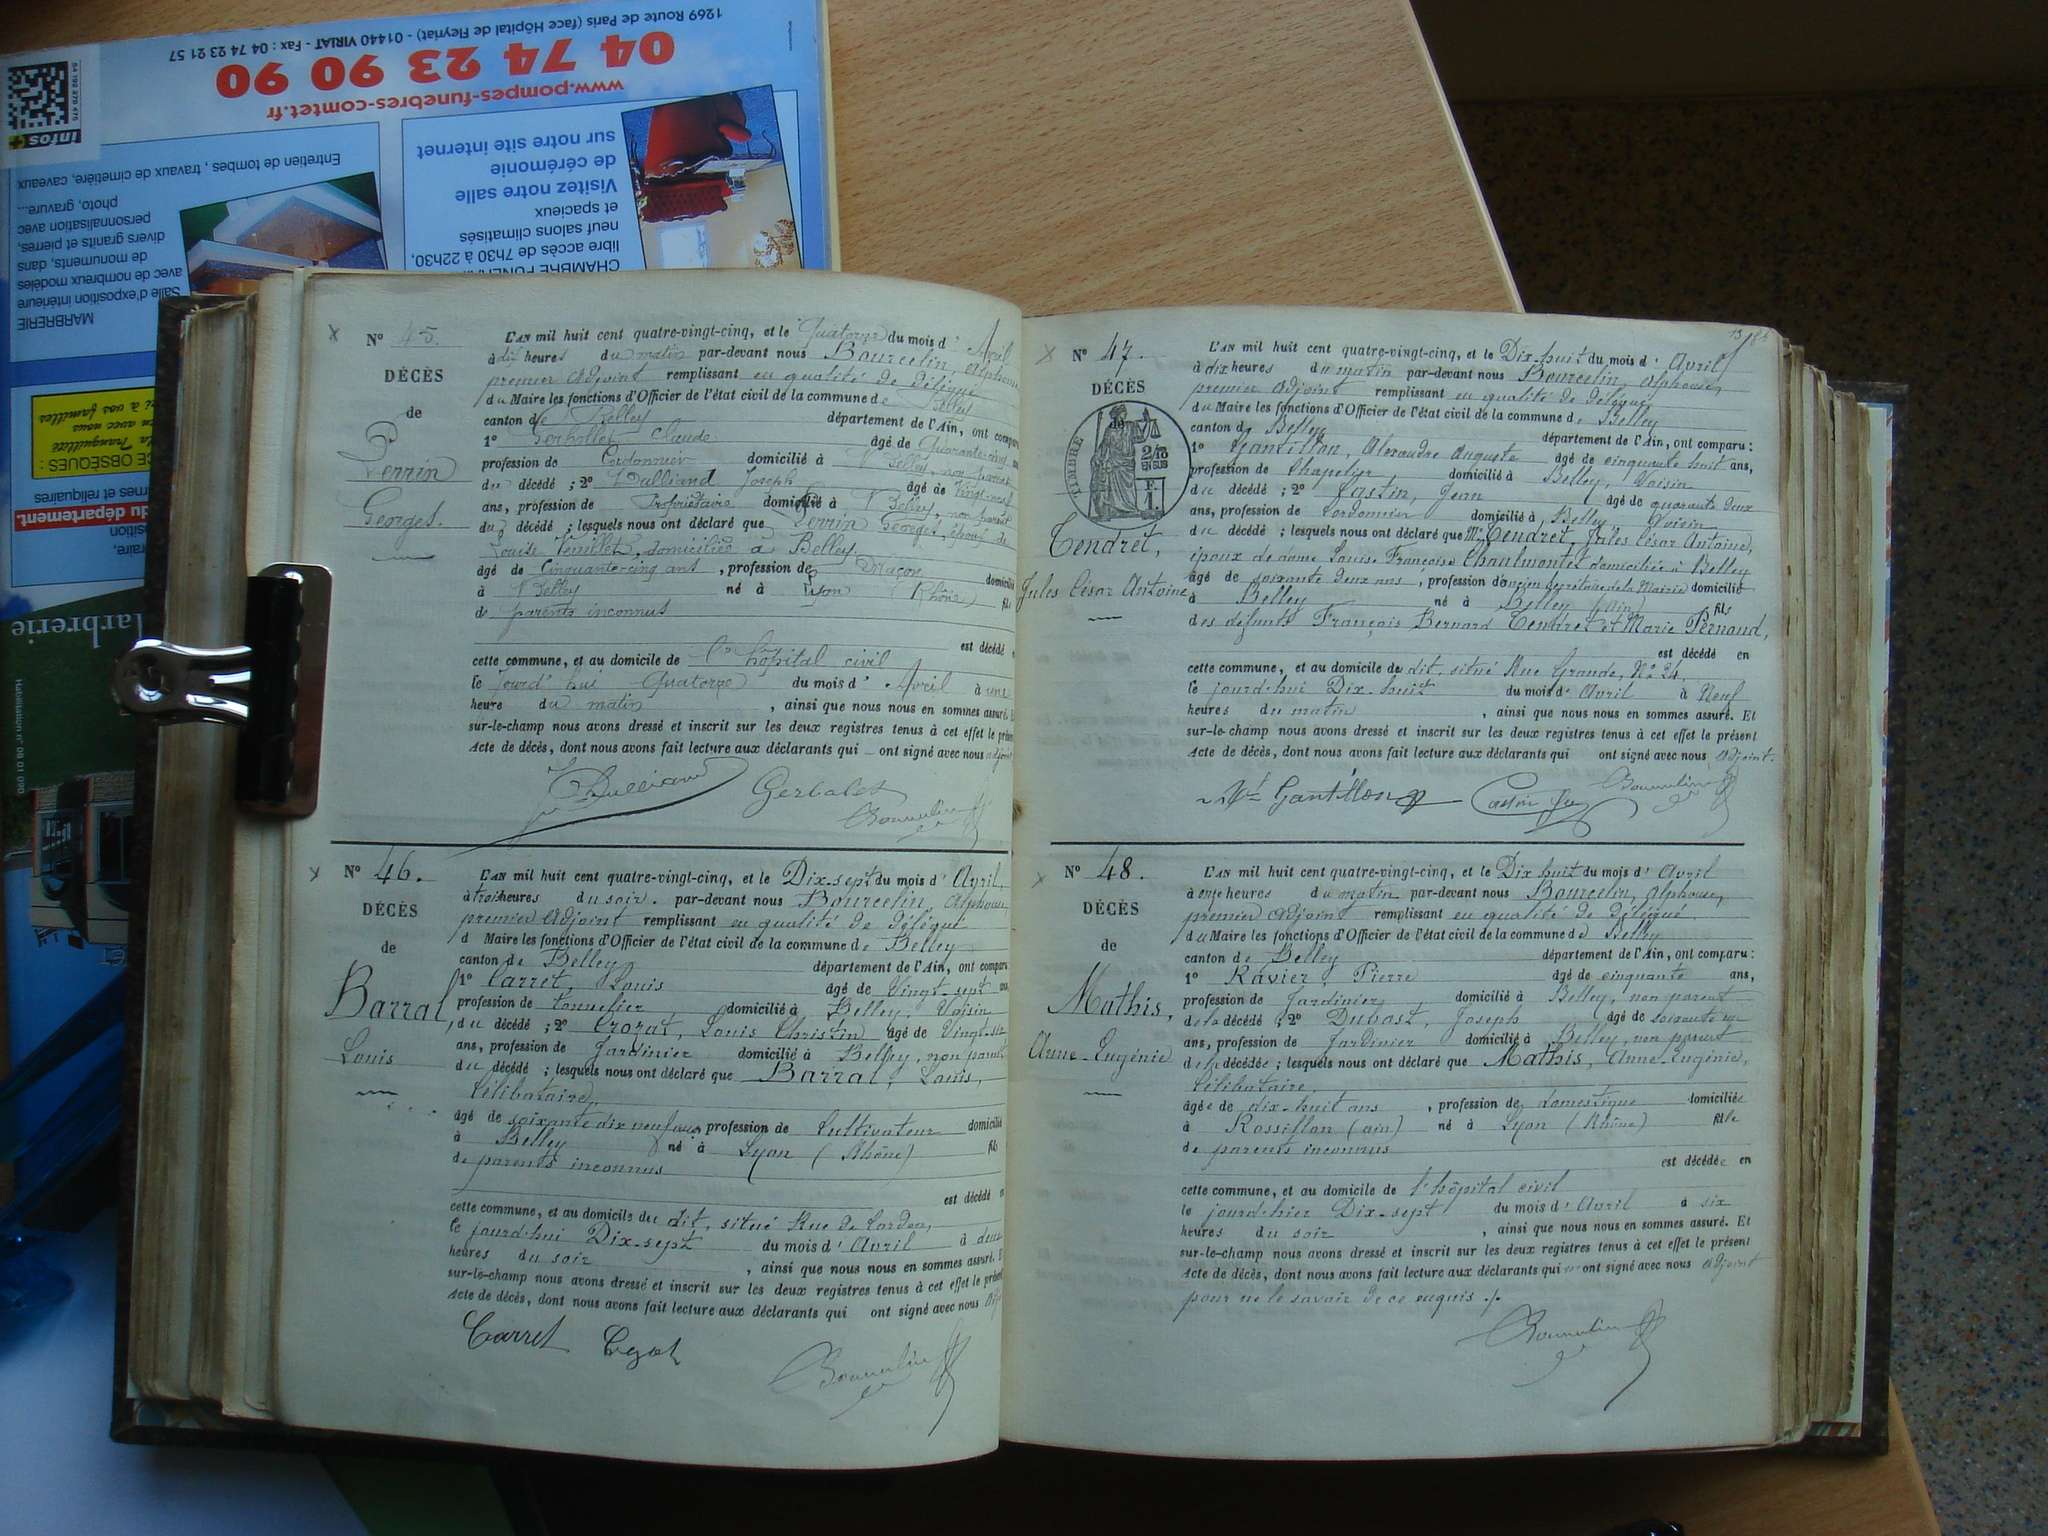 1269 Route de Paris (face Hôpital de Fleyriat) - 01440 VIRIAT - Fax : 04 74 23 21 57
04 74 23 90 90
www.pompes-funebres-comtet.fr
infos+
Entretien de tombes, travaux de cimetière, caveaux
photo, gravure...
personnalisation avec
divers granits et pierres,
de monuments, dans
avec de nombreux modèles
Salle d'exposition intérieure
MARBRERIE
Visitez notre salle
de cérémonie
sur notre site internet
et spacieux
neuf salons climatisés
libre accès de 7h30 à 22h30,
CHAMBRE FUNER
CE OBSÈQUES :
la Tranquillité
en avec nous
ri à vos familles
rnes et reliquaires
du département.
position
raire,
arbrerie
N° 45.
DÉCÈS
de
Perrin
Georges.
L'AN mil huit cent quatre-vingt-cinq, et le Quatorze du mois d'Avril
à dix heures du matin par-devant nous Bourcelin, Alphonse
premier Adjoint remplissant en qualité de délégué
du Maire les fonctions d'Officier de l'état civil de la commune de Belley
canton de Belley département de l'Ain, ont compar
1° Claude âgé de Quarante-cinq
profession de Cordonnier domicilié à Belley, non parent
du décédé ; 2° Joseph âgé de vingt-neuf
ans, profession de Propriétaire domicilié à Belley, non parent
du décédé ; lesquels nous ont déclaré que Perrin Georges, époux de
Louise domiciliée à Belley
âgé de Cinquante-cinq ans, profession de Maçon domicilié
à Belley né à Lyon (Rhône) fils
de parents inconnus
est décédé
cette commune, et au domicile de l'hôpital civil
le jourd'hui Quatorze du mois d'Avril à une
heure du matin, ainsi que nous nous en sommes assuré. E
sur-le-champ nous avons dressé et inscrit sur les deux registres tenus à cet effet le prése
Acte de décès, dont nous avons fait lecture aux déclarants qui ont signé avec nous adjoint
N° 46.
DÉCÈS
de
Barral,
Louis
L'AN mil huit cent quatre-vingt-cinq, et le Dix-sept du mois d'Avril,
à trois heures du soir. par-devant nous Bourcelin, Alphonse,
premier Adjoint remplissant en qualité de délégué
d Maire les fonctions d'Officier de l'état civil de la commune de Belley
canton de Belley département de l'Ain, ont comparu
1° Carret, Louis âgé de vingt-sept ans,
profession de tonnelier domicilié à Belley, Voisin
du décédé ; 2° Crozat, Louis Christin âgé de vingt-six
ans, profession de Jardinier domicilié à Belley, non parent
du décédé ; lesquels nous ont déclaré que Barral, Louis,
Célibataire,
âgé de soixante dix neuf ans, profession de Cultivateur domicilié
à Belley né à Lyon (Rhône) fils
de parents inconnus
est décédé en
cette commune, et au domicile du dit, situé Rue de
le jourd'hui Dix-sept du mois d'Avril à deux
heures du soir, ainsi que nous nous en sommes assuré. E
sur-le-champ nous avons dressé et inscrit sur les deux registres tenus à cet effet le présent
Acte de décès, dont nous avons fait lecture aux déclarants qui ont signé avec nous
Carret
N° 47.
DÉCÈS
de
TIMBRE
2/10
EN SUS
F.
1.
Tendret,
Jules César Antoine
L'AN mil huit cent quatre-vingt-cinq, et le Dix-huit du mois d'Avril
à dix heures du matin par-devant nous Bourcelin, Alphonse,
premier Adjoint remplissant en qualité de délégué
du Maire les fonctions d'Officier de l'état civil de la commune de Belley
canton de Belley département de l'Ain, ont comparu :
1° Gantillon, Alexandre Auguste âgé de cinquante huit ans,
profession de Chapelier domicilié à Belley, Voisin
du décédé ; 2° Castin, Jean âgé de quarante deux
ans, profession de Cordonnier domicilié à Belley Voisin
du décédé ; lesquels nous ont déclaré que Mr. Tendret, Jules César Antoine,
époux de dame Louise Françoise Chaulmontet domiciliée à Belley
âgé de soixante deux ans, profession d'ancien secrétaire de la Mairie domicilié
à Belley né à Belley (Ain) fils
des défunts François Bernard Tendret et Marie Pernaud,
est décédé en
cette commune, et au domicile du dit, situé Rue Grande, N° 24,
le jourd'hui Dix-huit du mois d'Avril à Neuf
heures du matin, ainsi que nous nous en sommes assuré. Et
sur-le-champ nous avons dressé et inscrit sur les deux registres tenus à cet effet le présent
Acte de décès, dont nous avons fait lecture aux déclarants qui ont signé avec nous Adjoint.
Gantillon
N° 48.
DÉCÈS
de
Mathis,
Anne-Eugénie
L'AN mil huit cent quatre-vingt-cinq, et le Dix huit du mois d'Avril
à onze heures du matin par-devant nous Bourcelin, Alphonse,
premier Adjoint remplissant en qualité de délégué
du Maire les fonctions d'Officier de l'état civil de la commune de Belley
canton de Belley département de l'Ain, ont comparu :
1° Ravier, Pierre âgé de cinquante ans,
profession de Jardinier, domicilié à Belley, non parent
de la décédé ; 2° Dubost, Joseph âgé de soixante un
ans, profession de Jardinier domicilié à Belley, non parent
de la décédée ; lesquels nous ont déclaré que Mathis, Anne-Eugénie,
Célibataire,
âgée de dix-huit ans, profession de domestique domiciliée
à Rossillon (ain) né à Lyon (Rhône) fille
de parents inconnus
est décédée en
cette commune, et au domicile de l'hôpital civil
le jourd'hier Dix-sept du mois d'Avril à six
heures du soir, ainsi que nous nous en sommes assuré. Et
sur-le-champ nous avons dressé et inscrit sur les deux registres tenus à cet effet le présent
Acte de décès, dont nous avons fait lecture aux déclarants qui n'ont signé avec nous Adjoint
pour ne le savoir de ce enquis ./.